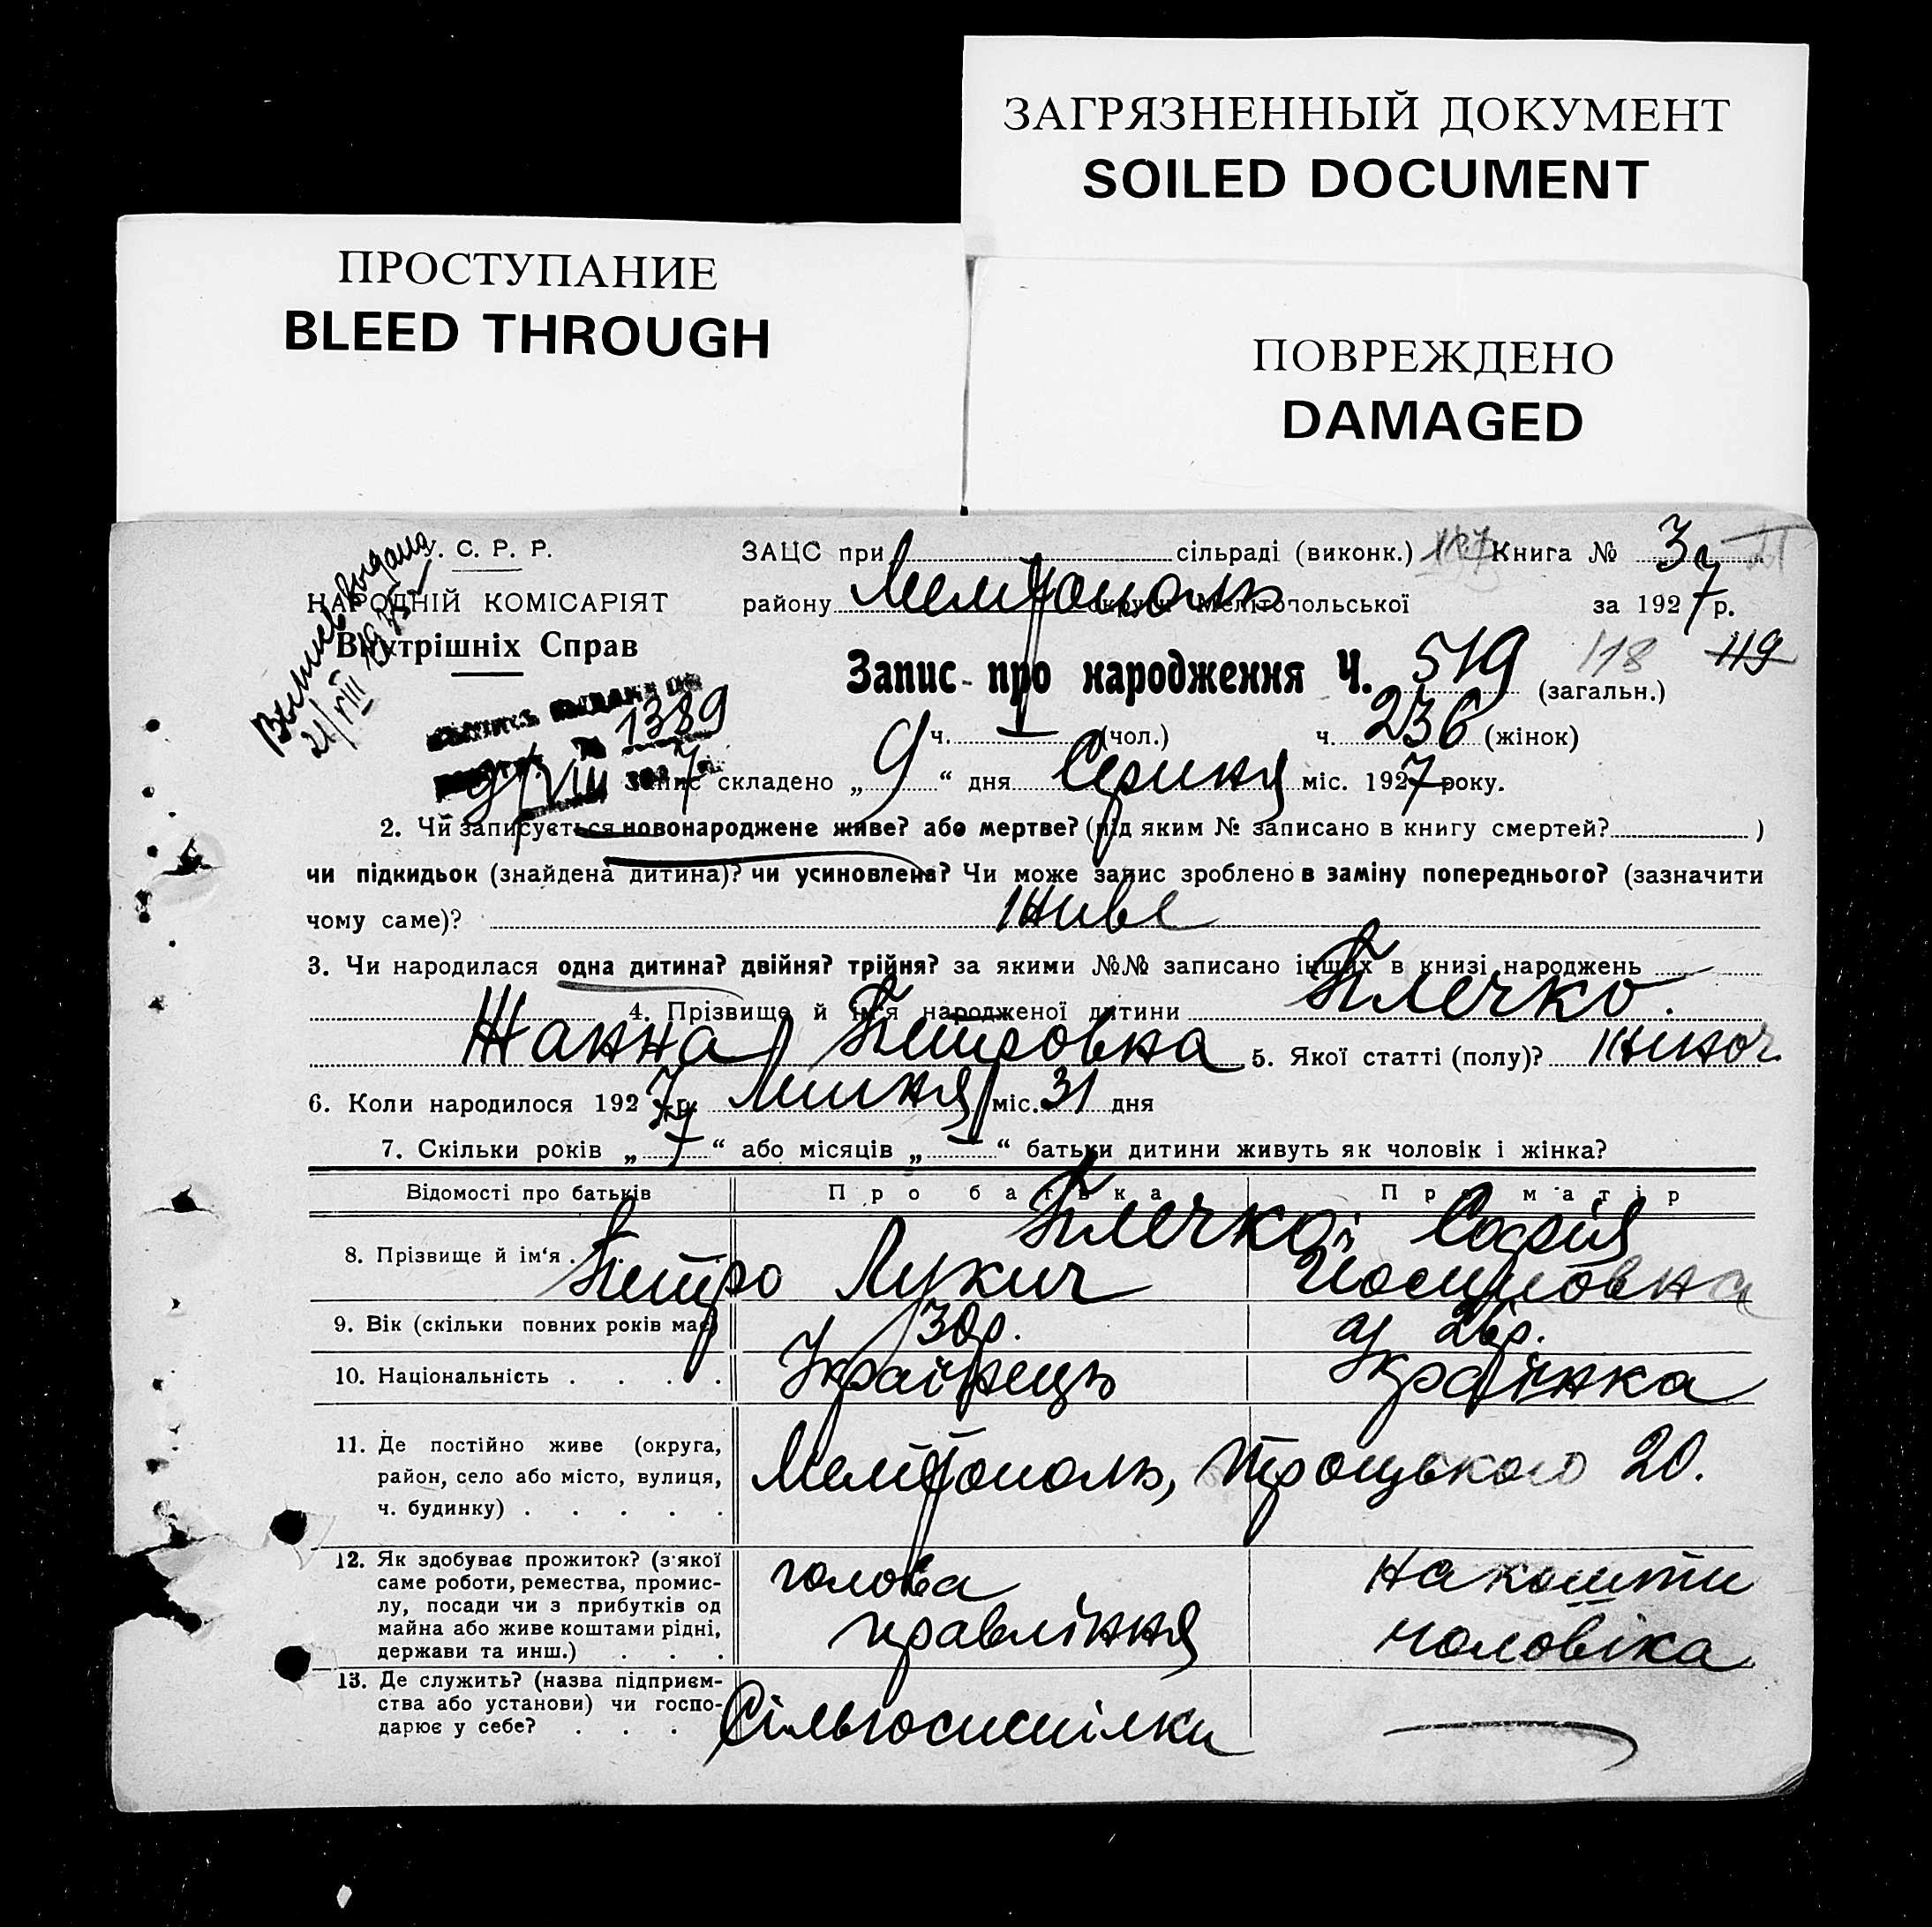 ЗАГРЯЗНЕННЫЙ ДОКУМЕНТ
SOILED DOCUMENT
ПРОСТУПАНИЕ
BLEED THROUGH
ПОВРЕЖДЕНО
DAMAGED
У. С. Р. Р.
НАРОДНІЙ КОМІСАРІЯТ
Внутрішніх Справ
выдана
21/VIII
1389
9/VIII
ЗАЦС при сільраді (виконк.) Книга № 3
району Мелітополь округи Мелітопольської за 1927 р.
Запис про народження Ч. 519 (загальн.) 118 119
ч. (чол.) ч. 236 (жінок)
Запис складено „9“ дня Серпня міс. 1927 року.
2. Чи записується новонароджене живе? або мертве? (під яким № записано в книгу смертей? )
чи підкидьок (знайдена дитина)? чи усиновлена? Чи може запис зроблено в заміну попереднього? (зазначити
чому саме)? Живе
3. Чи народилася одна дитина? двійня? трійня? за якими №№ записано інших в книзі народжень
4. Прізвище й ім'я народженої дитини Плечко.
Жанна Петровна 5. Якої статті (полу)? Жіноч.
6. Коли народилося 1927 р. Липня міс. 31 дня
7. Скільки років „7“ або місяців „—“ батьки дитини живуть як чоловік і жінка?
Відомості про батьків Про батька Про матір
8. Прізвище й ім'я . Плечко Петро Лукич Софія Иосиповна
9. Вік (скільки повних років має) 30 р. 26 р.
10. Національність . . . . Українець Українка
11. Де постійно живе (округа,
район, село або місто, вулиця,
ч. будинку) . . . . .
Мелітополь, Троцького 20.
12. Як здобуває прожиток? (з якої
саме роботи, ремества, промис-
лу, посади чи з прибутків од
майна або живе коштами рідні,
держави та инш.) . . .
голова
правління
на кошти
чоловіка
13. Де служить? (назва підприєм-
ства або установи) чи госпо-
дарює у себе? . . .
Сільгоспспілки